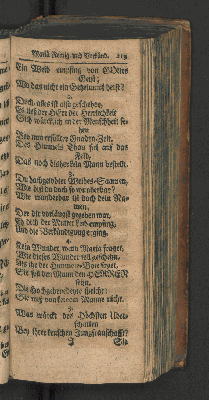 Mariä König und Verkünd. 213
Ein Weib empfing von GOttes
Geist;
Wo das nicht ein Geheimniß heist?
2.
Doch alles ist also geschehen,
Es ließ der HErr der Herrlichkeit
Sich würcklich in der Menschheit se-
hen
Bey nun erfüllter Gnaden-Zeit.
Des Himmels Thau fiel auf das
Feld,
Das noch bisher kein Mann bestellt.
3.
Du hochgelobter Weibes-Saamen,
Wie bist du doch so wunderbar?
Wie wunderbar ist doch dein Na-
men,
Der dir vorlängst gegeben war,
Eh dich der Mutter Leib empfing,
Und die Verkündigung erging.
4.
Kein Wunder, wenn Maria fraget,
Wie dieses Wunder soll geschehn,
Als ihr der Himmels-Bote saget,
Sie soll den Mann den HERREN
sehn.
Die Hochgebenedeyte spricht:
Sie weiß von keinem Manne nicht.
5.
Was würckt des Höchsten Über-
schatten
Bey ihrer keuschen Jungfrauschafft?
Sie